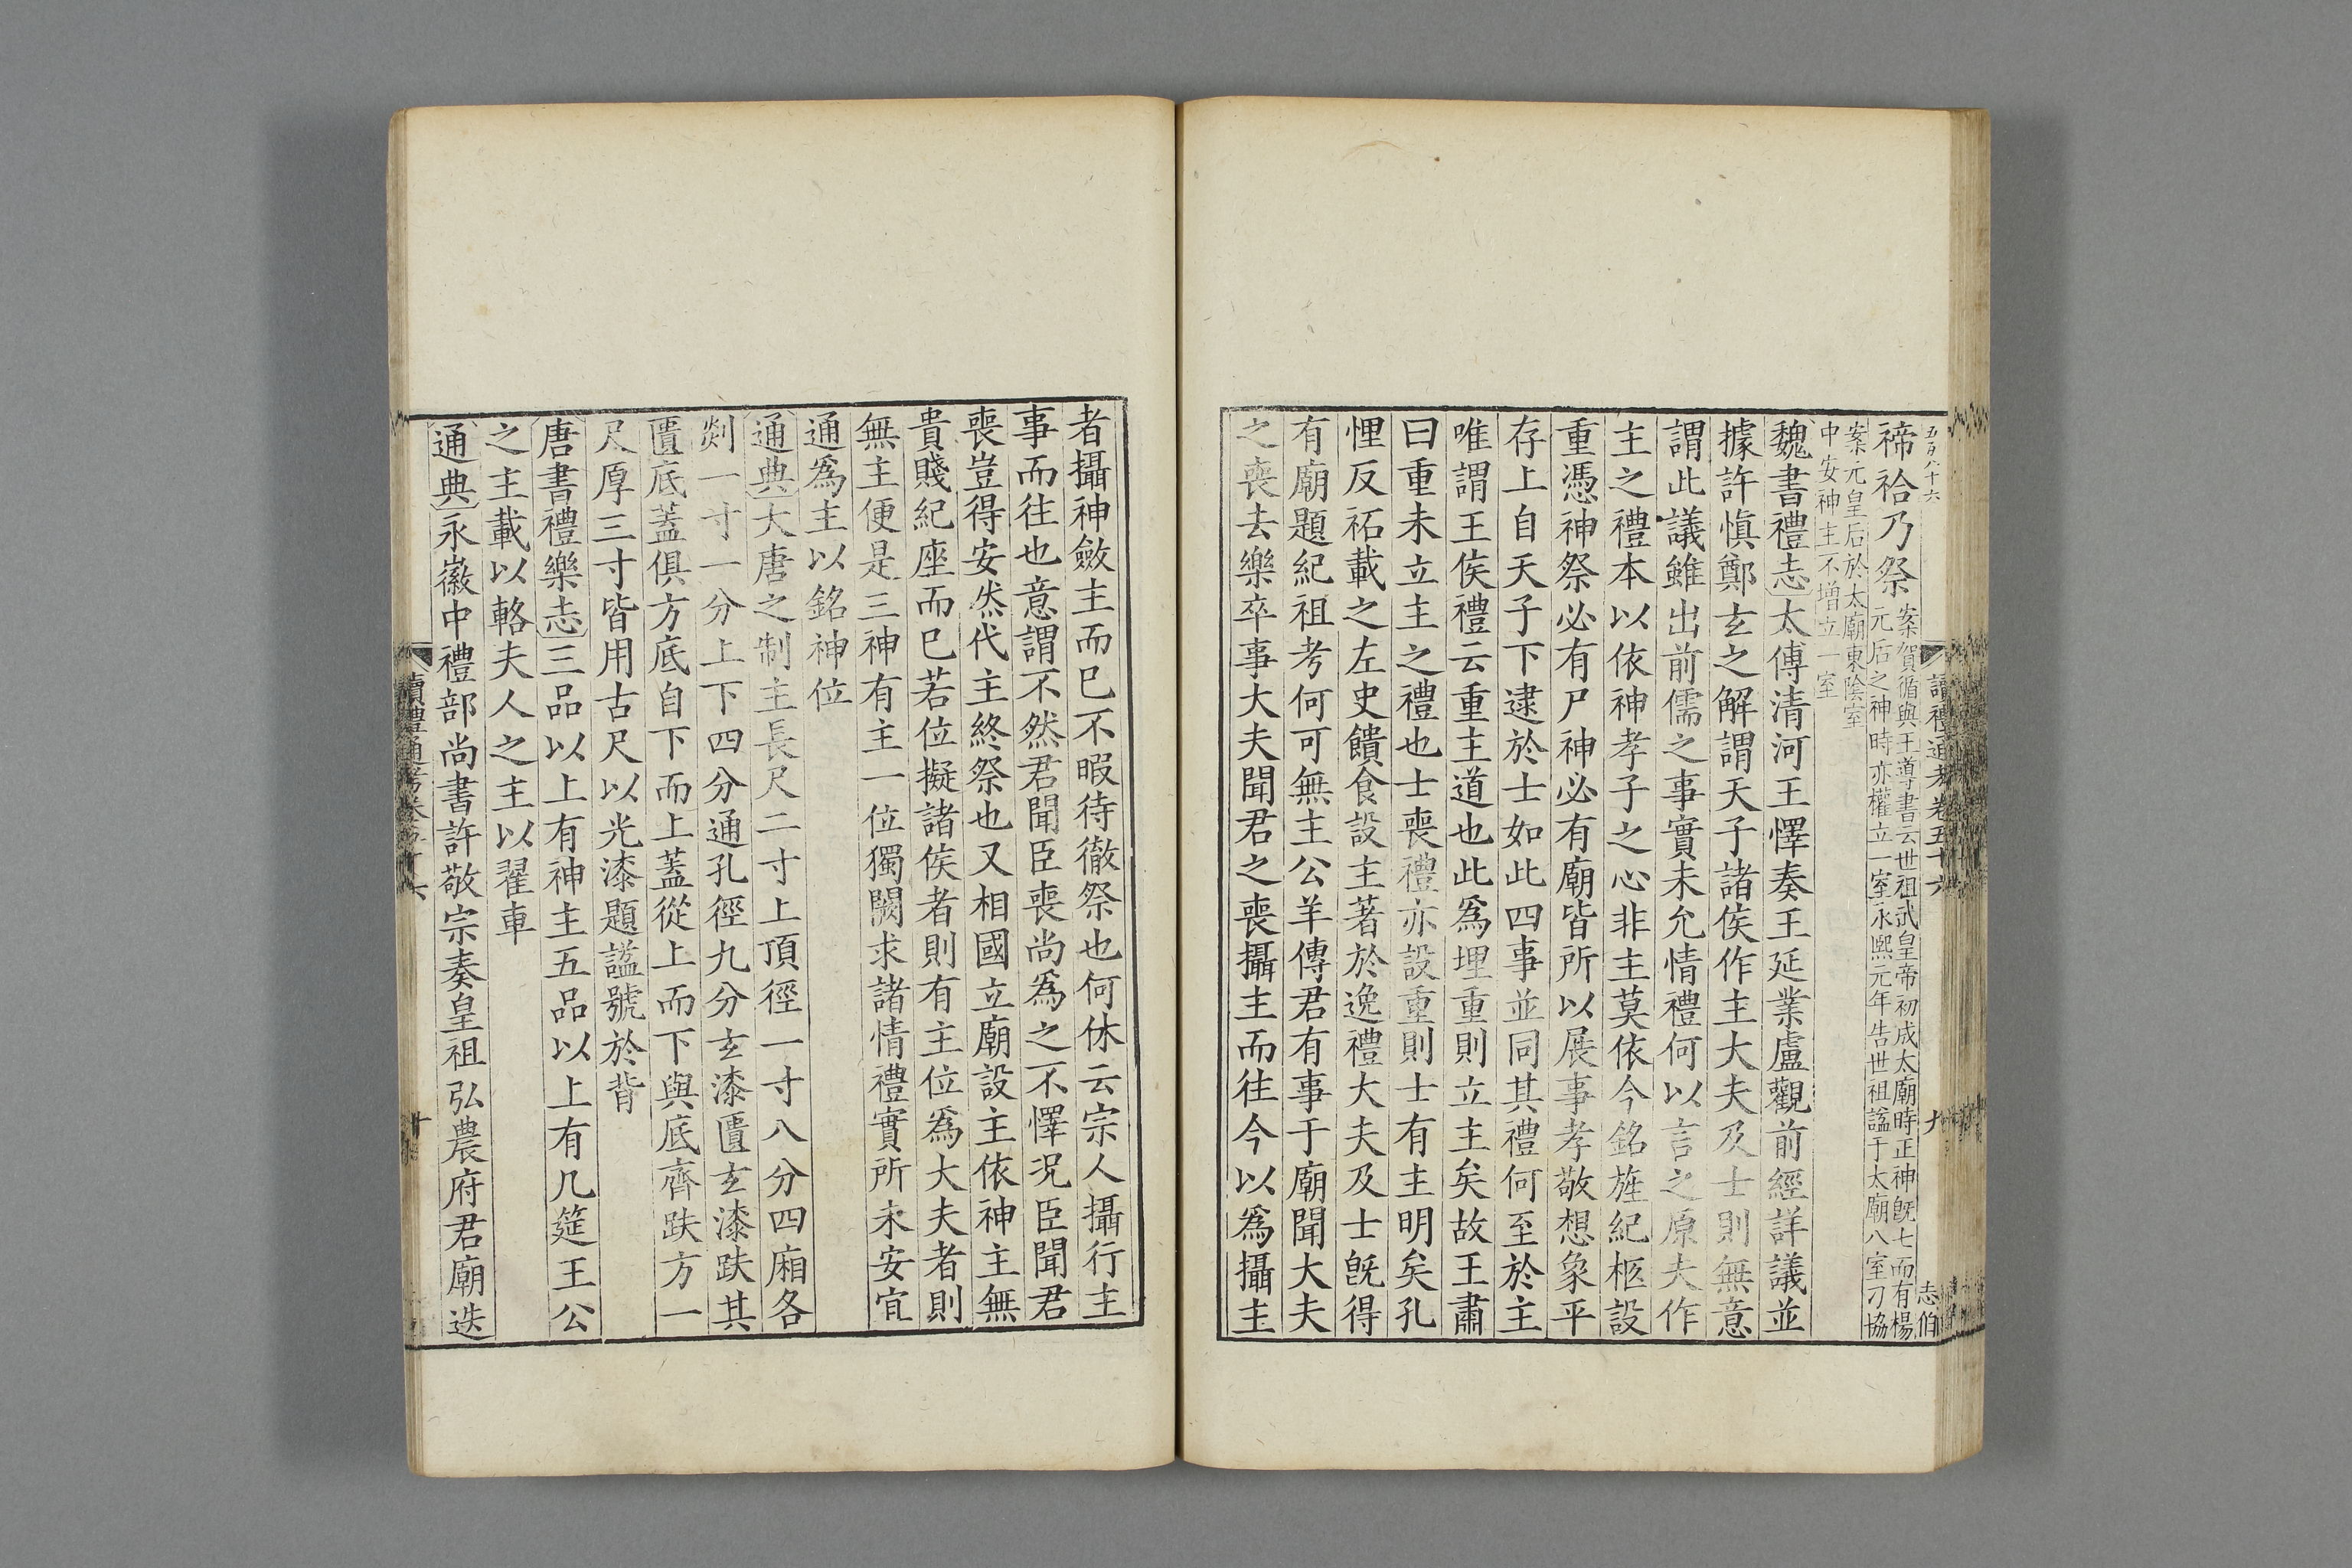 五百八十六
讀禮通考卷五十六
九
志伯
禘祫乃祭案賀循與王導書云世祖武皇帝初成太廟時正神旣七而有楊
元后之神時亦權立一室永熙元年告世祖諡于太廟八室刁協
案元皇后於太廟東陰室
中安神主不增立一室
魏書禮志太傅清河王懌奏王延業盧觀前經詳議並
據許愼鄭玄之解謂天子諸侯作主大夫及士則無意
謂此議雖出前儒之事實未允情禮何以言之原夫作
主之禮本以依神孝子之心非主莫依今銘旌紀柩設
重憑神祭必有尸神必有廟皆所以展事孝敬想象平
存上自天子下逮於士如此四事並同其禮何至於主
唯謂王侯禮云重主道也此爲埋重則立主矣故王肅
曰重未立主之禮也士喪禮亦設重則士有主明矣孔
悝反祏載之左史饋食設主著於逸禮大夫及士旣得
有廟題紀祖考何可無主公羊傳君有事于廟聞大夫
之喪去樂卒事大夫聞君之喪攝主而往今以爲攝主
者攝神斂主而已不暇待徹祭也何休云宗人攝行主
事而往也意謂不然君聞臣喪尚爲之不懌况臣聞君
喪豈得安然代主終祭也又相國立廟設主依神主無
貴賤紀座而已若位擬諸侯者則有主位爲大夫者則
無主便是三神有主一位獨闕求諸情禮實所未安宜
通爲主以銘神位
通典大唐之制主長尺二寸上頂徑一寸八分四廂各
剡一寸一分上下四分通孔徑九分玄漆匱玄漆趺其
匱底蓋俱方底自下而上蓋從上而下與底齊趺方一
尺厚三寸皆用古尺以光漆題諡號於背
唐書禮樂志三品以上有神主五品以上有几筵王公
之主載以輅夫人之主以翟車
通典永徽中禮部尚書許敬宗奏皇祖弘農府君廟迭
讀禮通考卷五十六
十